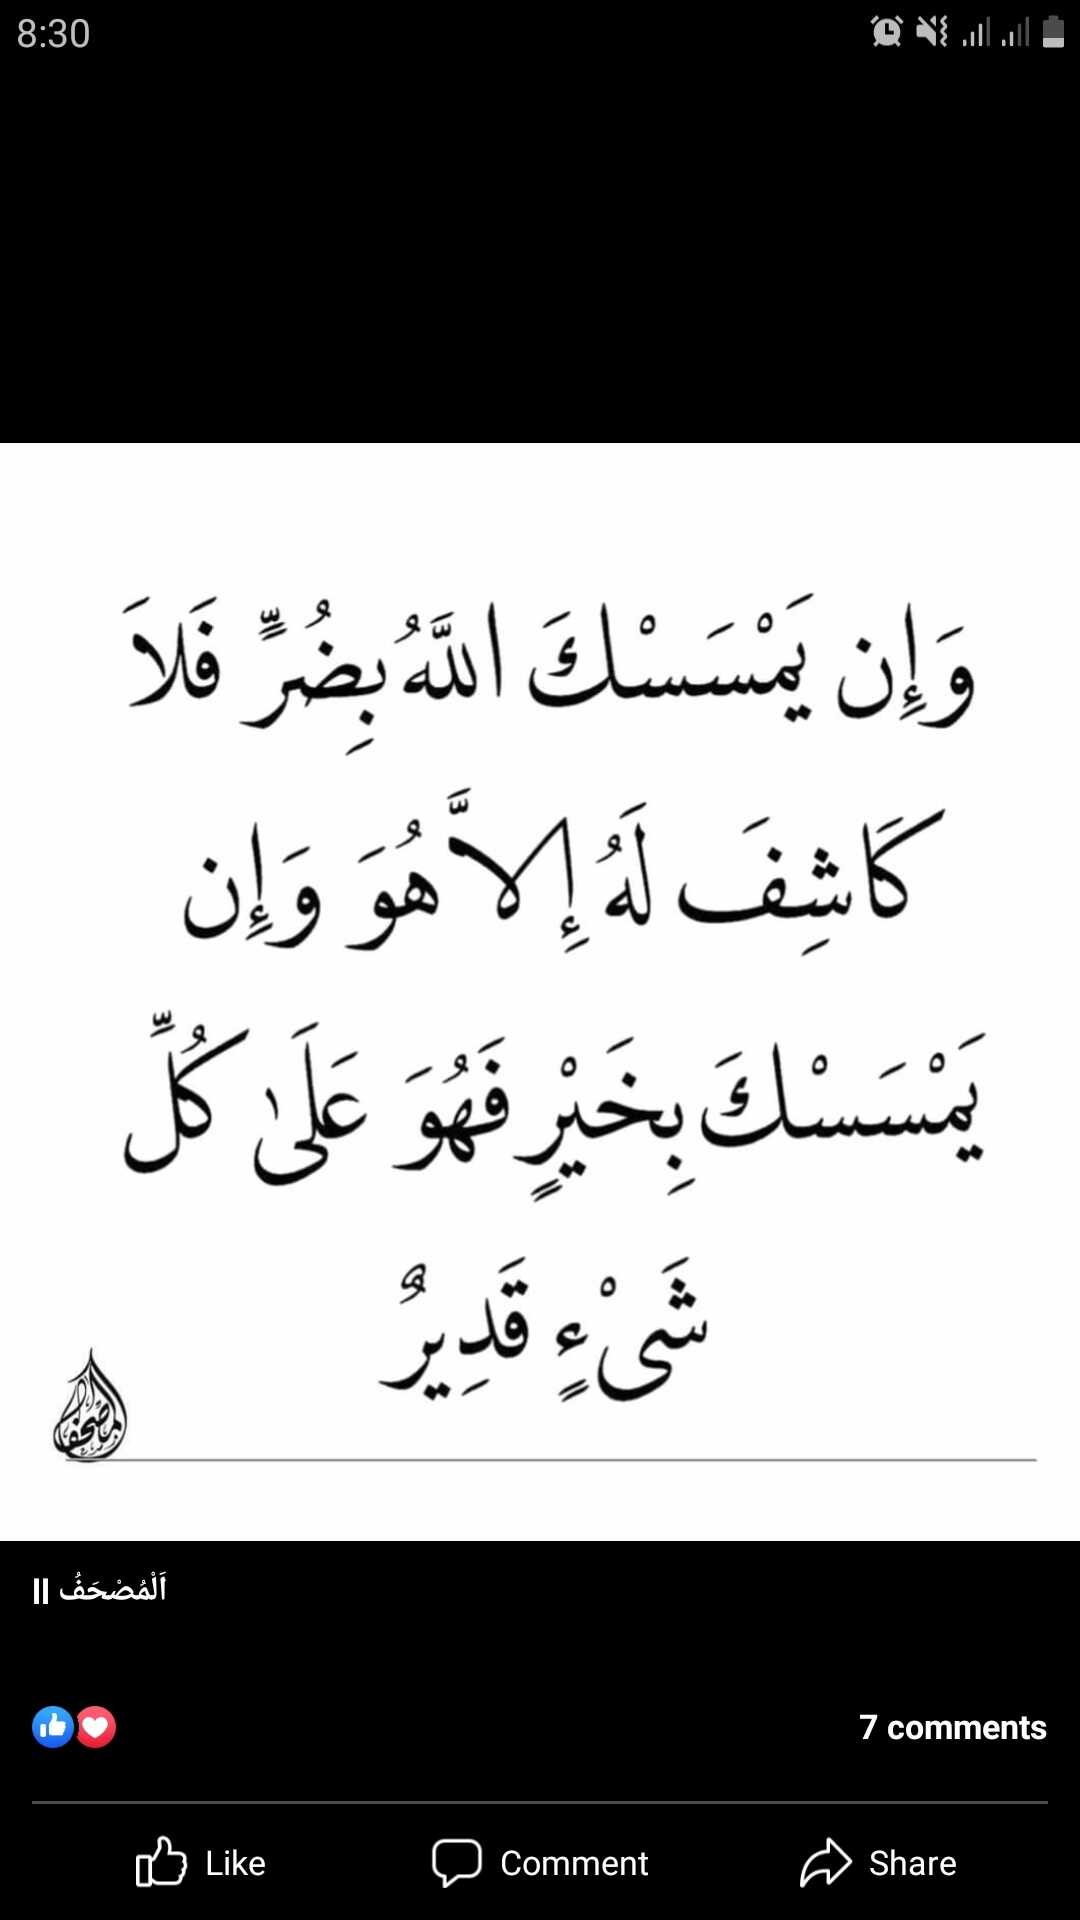 8:30
وَإِن يَمْسَسْكَ اللَّهُ بِضُرٍّ فَلاَ
كَاشِفَ لَهُ إِلاَّ هُوَ وَإِن
يَمْسَسْكَ بِخَيْرٍ فَهُوَ عَلَىٰ كُلِّ
شَىْءٍ قَدِيرٌ
المصحف
اَلْمُصْحَفُ ||
7 comments
Like Comment Share